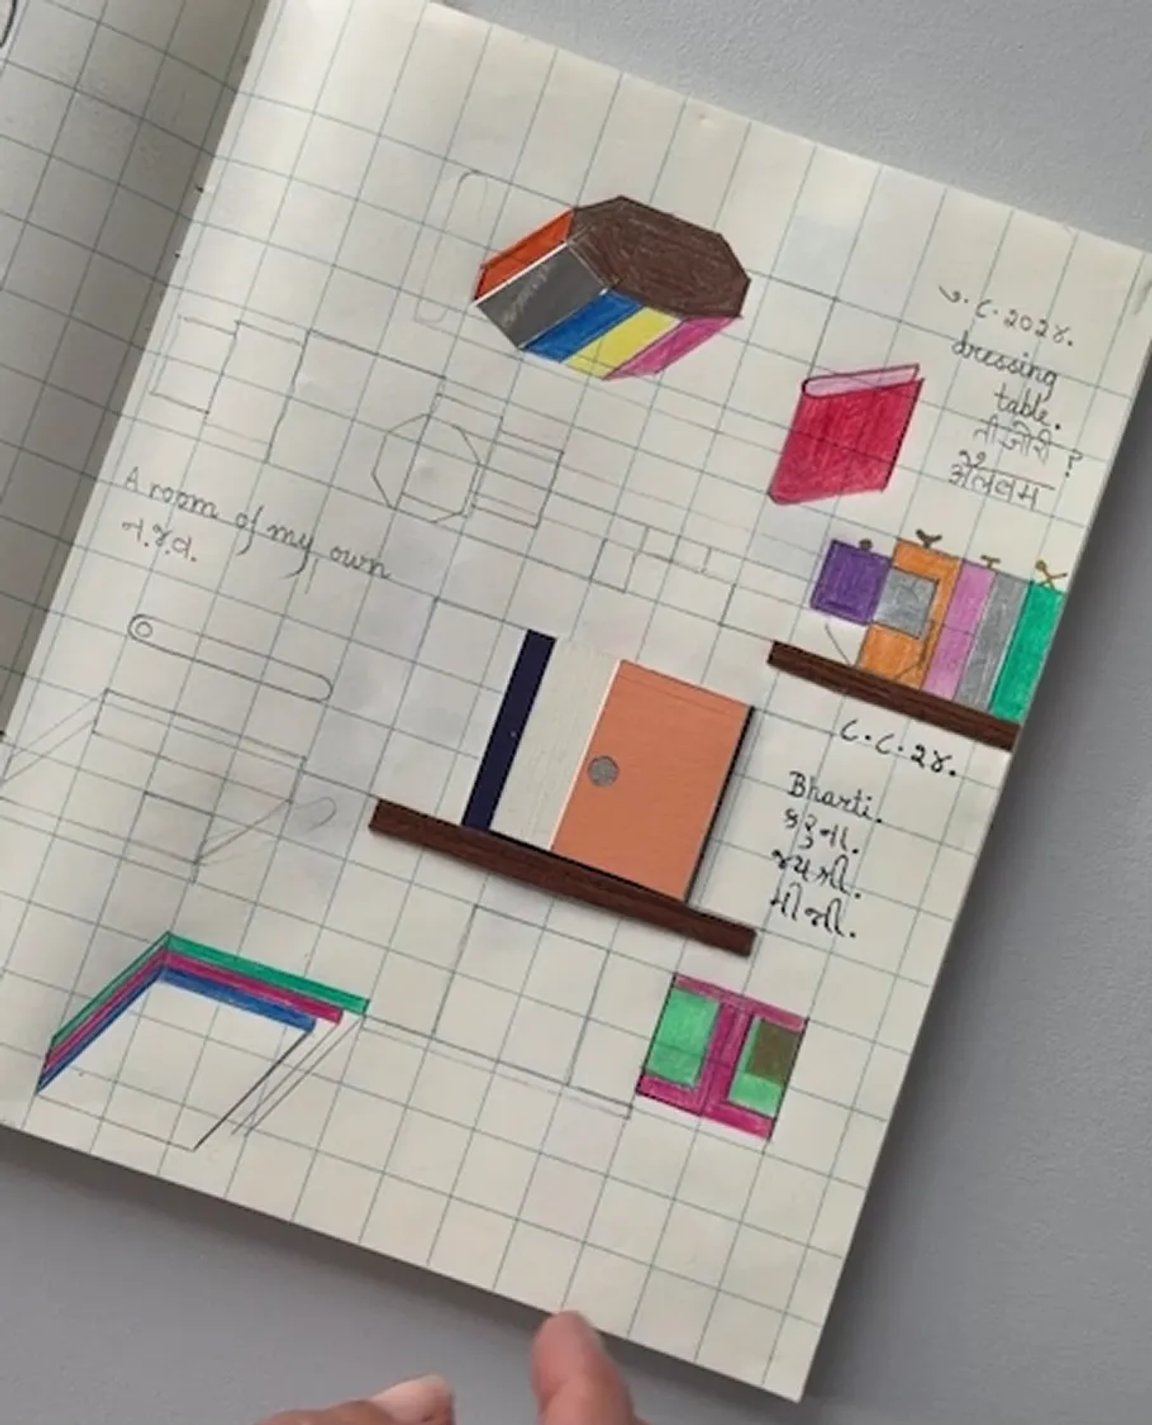 ૭.૮.૨૦૨૪.
dressing
table.
तीजोरी ?
अॅलबम
A room of my own
ન.જ.વ.
૮.૮.૨૪.
Bharti.
કરુના.
જયશ્રી.